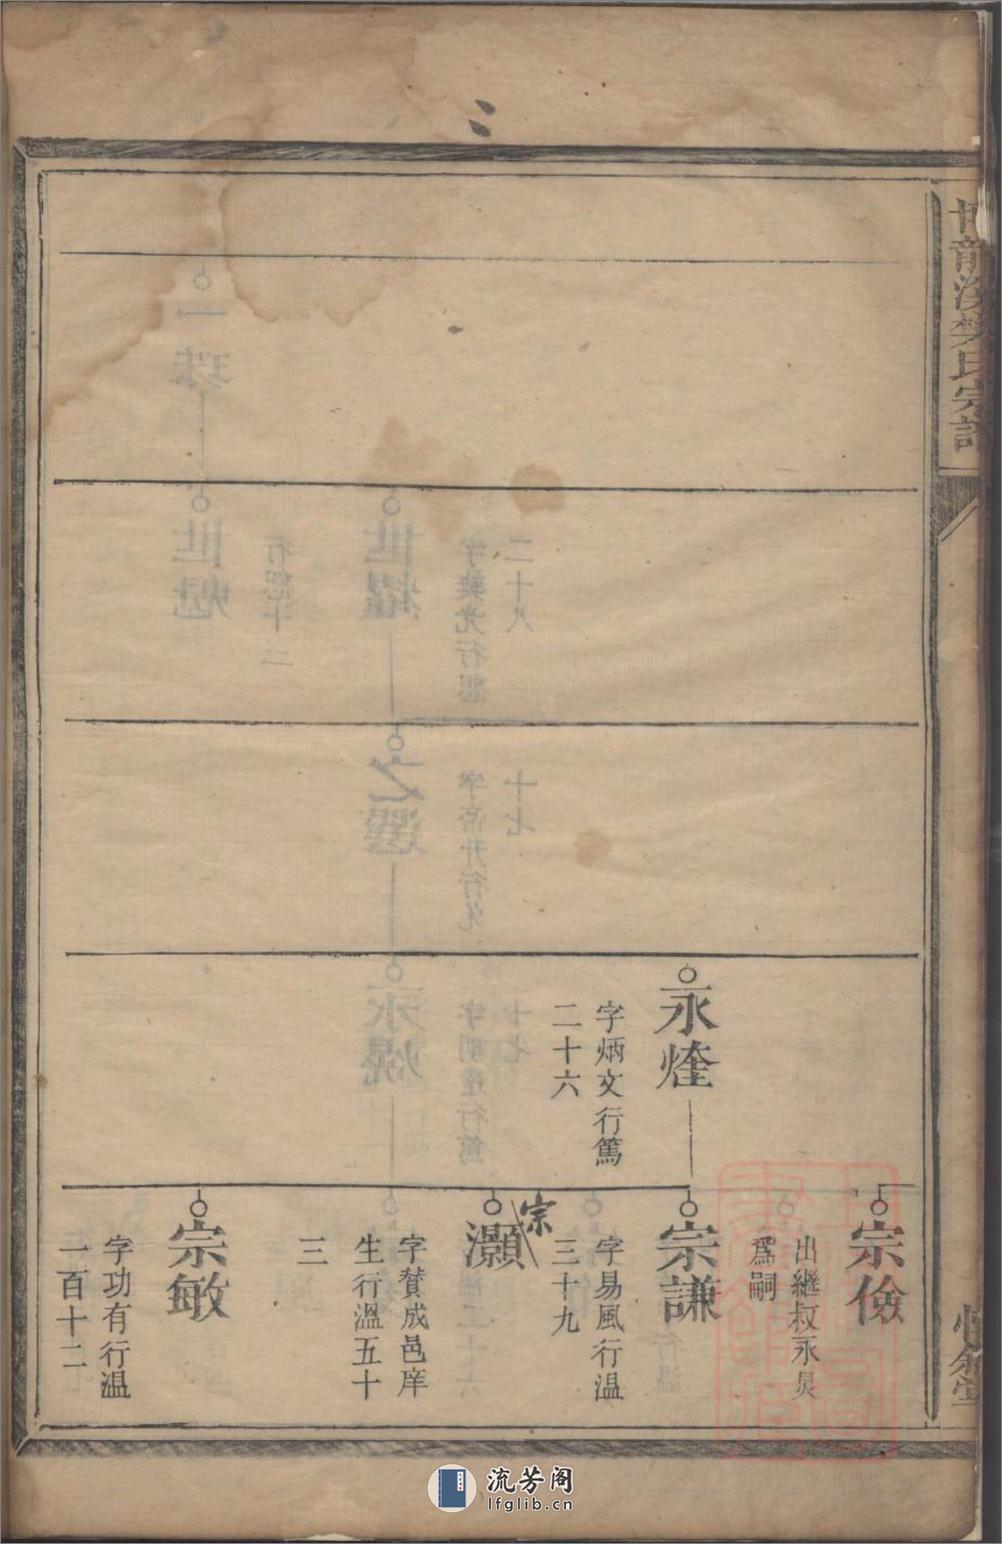 龍溪樊氏宗譜
永熞
字炳文行篤
二十六
宗儉
出繼叔永炅
爲嗣
宗謙
字易風行溫
三十九
宗
灝
字贊成邑庠
生行溫五十
三
宗敏
字功有行溫
一百十二
流芳阁
lfglib.cn